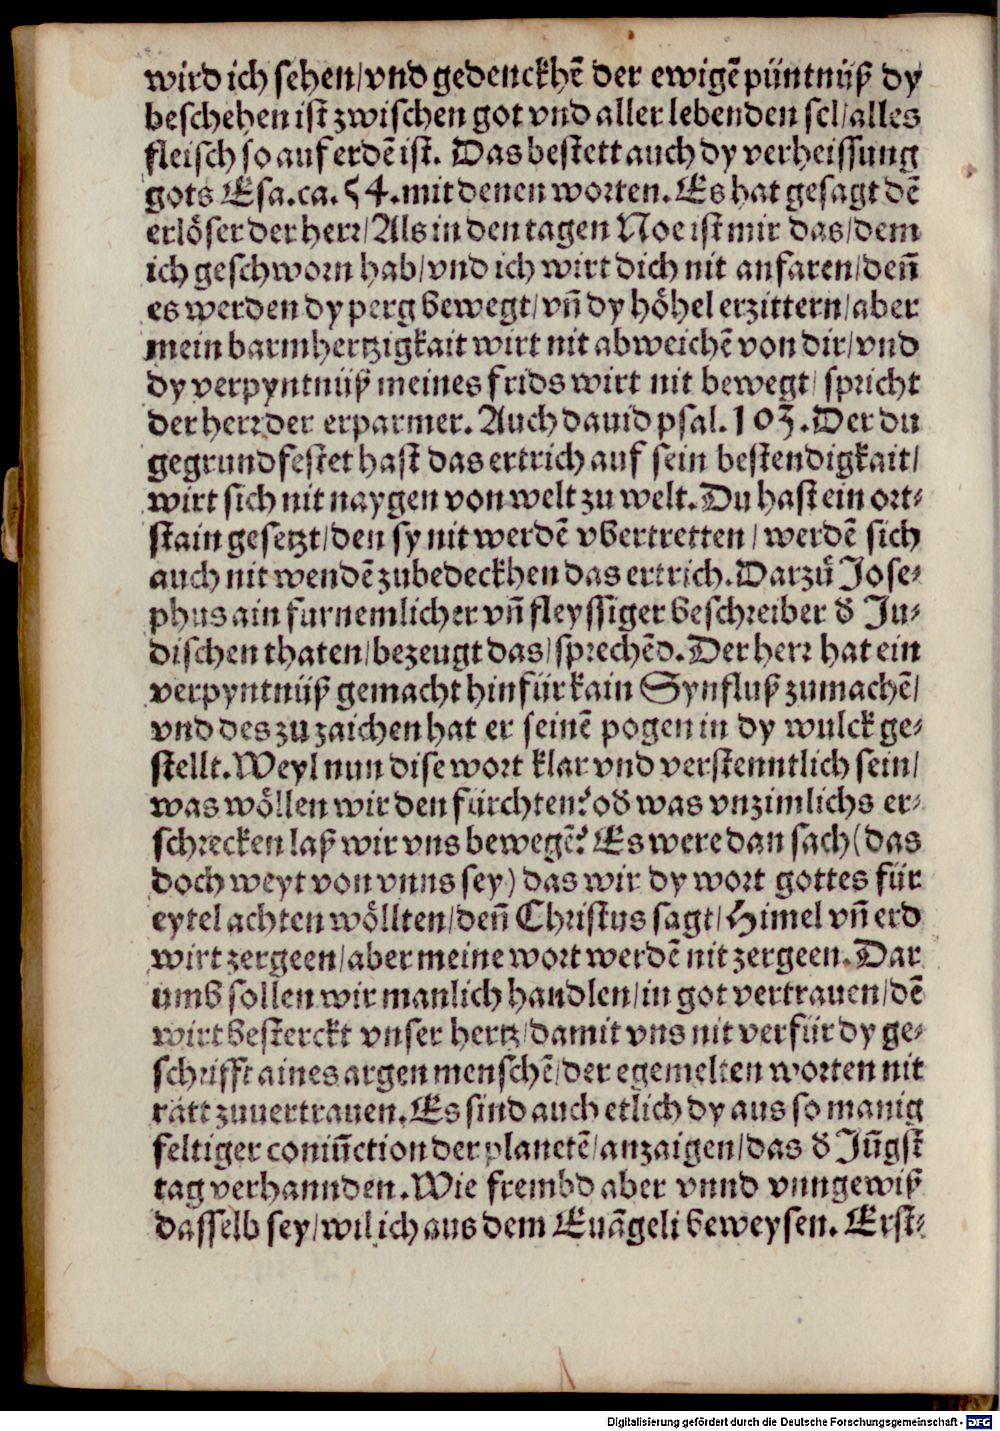 wird ich sehen/vnd gedenckhẽ der ewigẽ püntnüß dy
beschehen ist zwischen got vnd aller lebenden sel/alles
fleisch so auf erdẽ ist. Das bestett auch dy verheissung
gots Esa.ca.54.mit denen worten. Es hat gesagt dẽ
erlöser der herr/Als in den tagen Noe ist mir das/dem
ich geschworn hab/vnd ich wirt dich nit anfaren/deñ
es werden dy perg bewegt/vñ dy höhel erzittern/aber
mein barmhertzigkait wirt nit abweichẽ von dir/vnd
dy verpyntnüß meines frids wirt nit bewegt/spricht
der herr der erparmer. Auch dauid psal.103.Der du
gegrundfestet hast das ertrich auf sein bestendigkait/
wirt sich nit naygen von welt zu welt.Du hast ein ort⸗
stain gesetzt/den sy nit werdẽ vbertretten/werdẽ sich
auch nit wendẽ zubedeckhen das ertrich.Darzů Jose⸗
phus ain furnemlicher vñ fleyssiger beschreiber d Ju⸗
dischen thaten/bezeugt das/sprechẽd.Der herr hat ein
verpyntnüß gemacht hinfür kain Synfluß zumachẽ/
vnd des zu zaichen hat er seinẽ pogen in dy wulck ge⸗
stellt.Weyl nun dise wort klar vnd verstenntlich sein/
was wöllen wir den fürchten? od was vnzimlichs er⸗
schrecken laß wir vns bewegẽ? Es were dan sach (das
doch weyt von vnns sey) das wir dy wort gottes für
eytel achten wöllten/deñ Christus sagt/Himel vñ erd
wirt zergeen/aber meine wort werdẽ nit zergeen.Dar
umb sollen wir manlich handlen/in got vertrauen/dẽ
wirt besterckt vnser hertz/damit vns nit verfür dy ge⸗
schrifft aines argen menschẽ/der egemelten worten nit
rätt zuuertrauen.Es sind auch etlich dy aus so manig
feltiger coniũction der planetẽ/anzaigen/das d Jũgst
tag verhannden.Wie frembd aber vnnd vnngewiß
dasselb sey/wil ich aus dem Euãgeli beweysen. Erst⸗
Digitalisierung gefördert durch die Deutsche Forschungsgemeinschaft - DFG